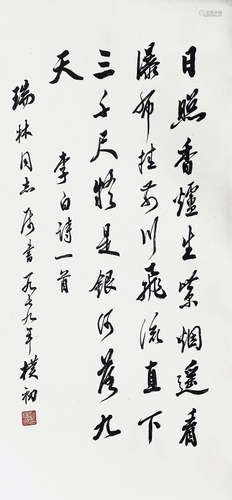 日照香爐生紫烟遥看
瀑布挂前川飛流直下
三千尺疑是銀河落九
天
李白詩一首
瑞林同志属書一九七九年樸初